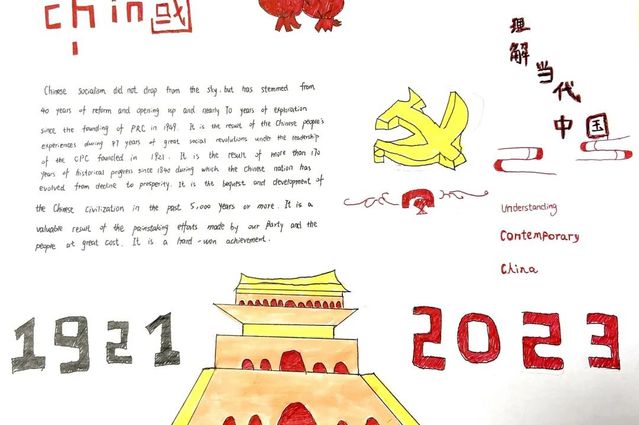 chin國
Chinese socialism did not drop from the sky, but has stemmed from
40 years of reform and opening up and nearly 70 years of exploration
since the founding of PRC in 1949. It is the result of the Chinese people's
experiences during 97 years of great social revolutions under the leadership
of the CPC founded in 1921. It is the result of more than 170
years of historical progress since 1840 during which the Chinese nation has
evolved from decline to prosperity. It is the bequest and development of
the Chinese civilization in the past 5,000 years or more. It is a
valuable result of the painstaking efforts made by our party and the
people at great cost. It is a hard-won achievement.
理解当代中国
Understanding
Contemporary
China
1921
2023